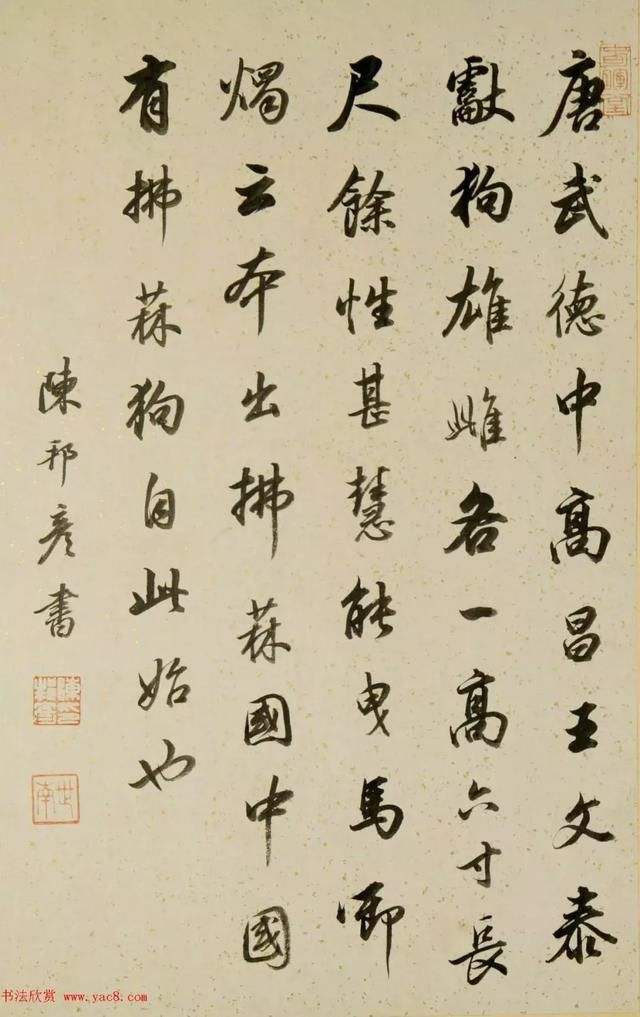 唐武德中高昌王文泰
獻狗雄雌各一高六寸長
尺餘性甚慧能曳馬啣
燭云本出拂菻國中國
有拂菻狗自此始也
陳邦彥書
书法欣赏 www.yac8.com